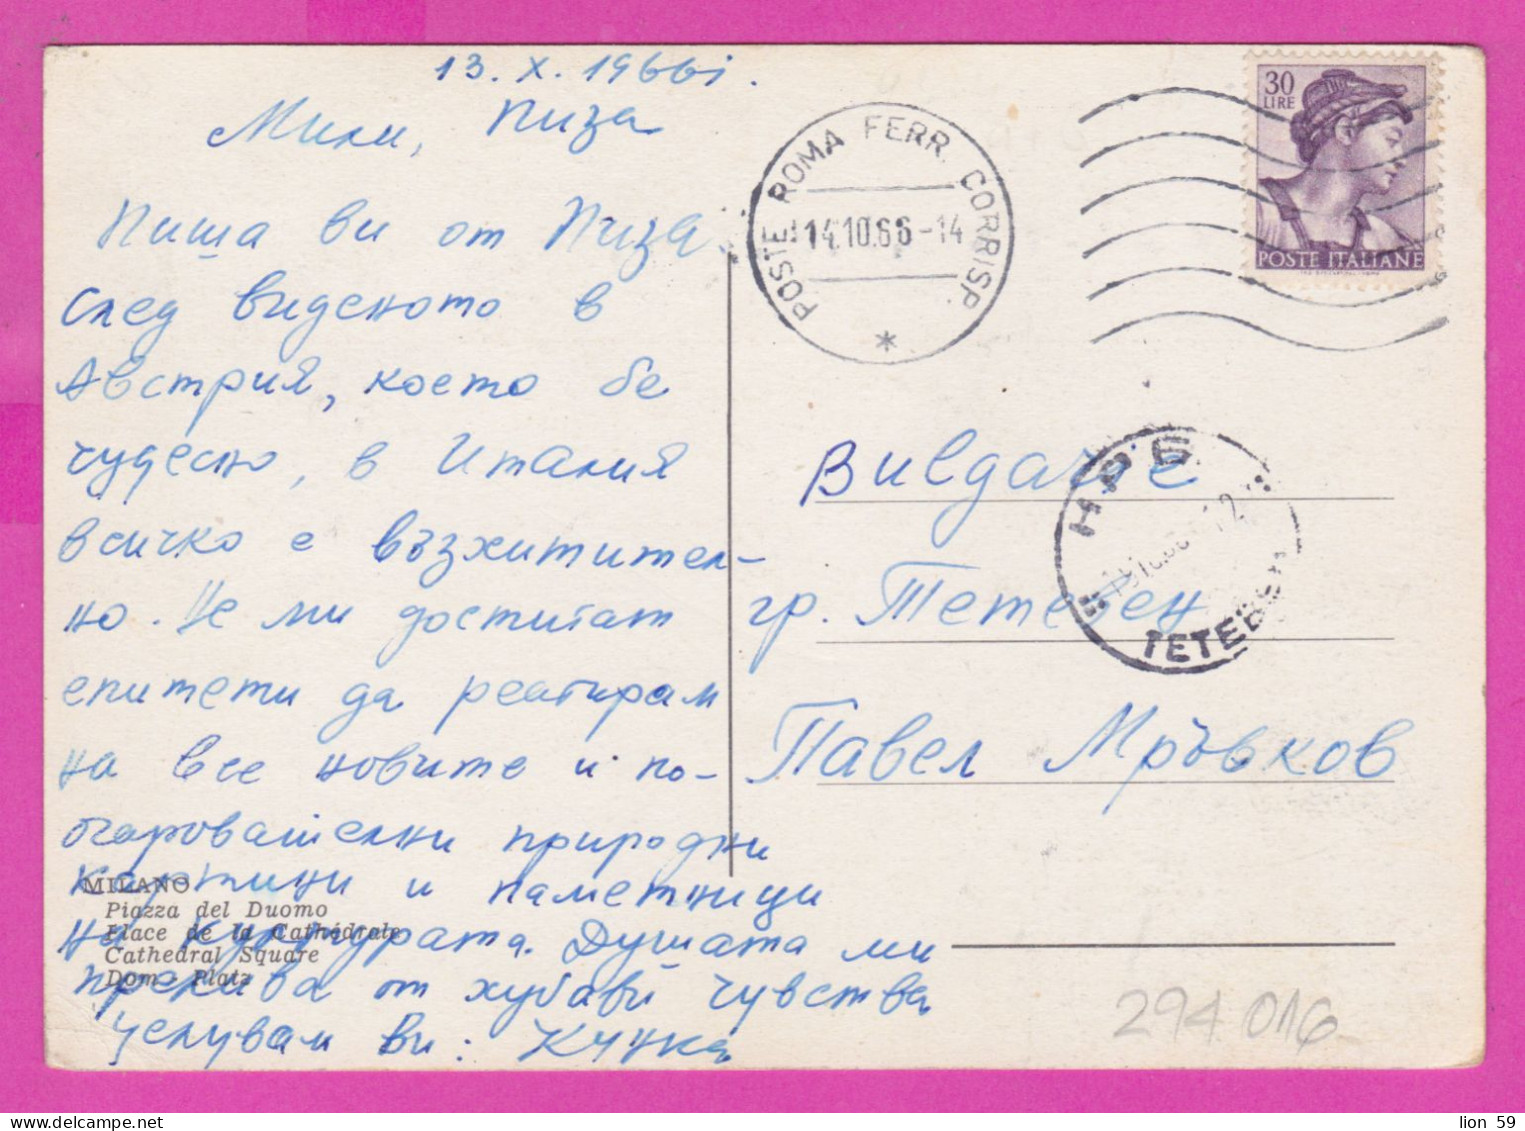 13. X. 1966г.
Пиза
Мили,
Пиша ви от Пиза
след виденото в
Австрия, което бе
чудесно, в Италия
всичко е възхитител-
но. Не ми достигат
епитети да реагирам
на все новите и по-
очарователни природни
картини и паметници
на културата. Душата ми
прелива от хубави чувства
Целувам ви:
MILANO
Piazza del Duomo
Place de la Cathédrale
Cathedral Square
Dom - Platz
POSTE ROMA FERR. CORRISP.
14.10.66-14
30
LIRE
POSTE ITALIANE
Bulgarie
гр. Тетевен
Павел Мръвков
НРБ
ТЕТЕВЕН
294 016
lion 59